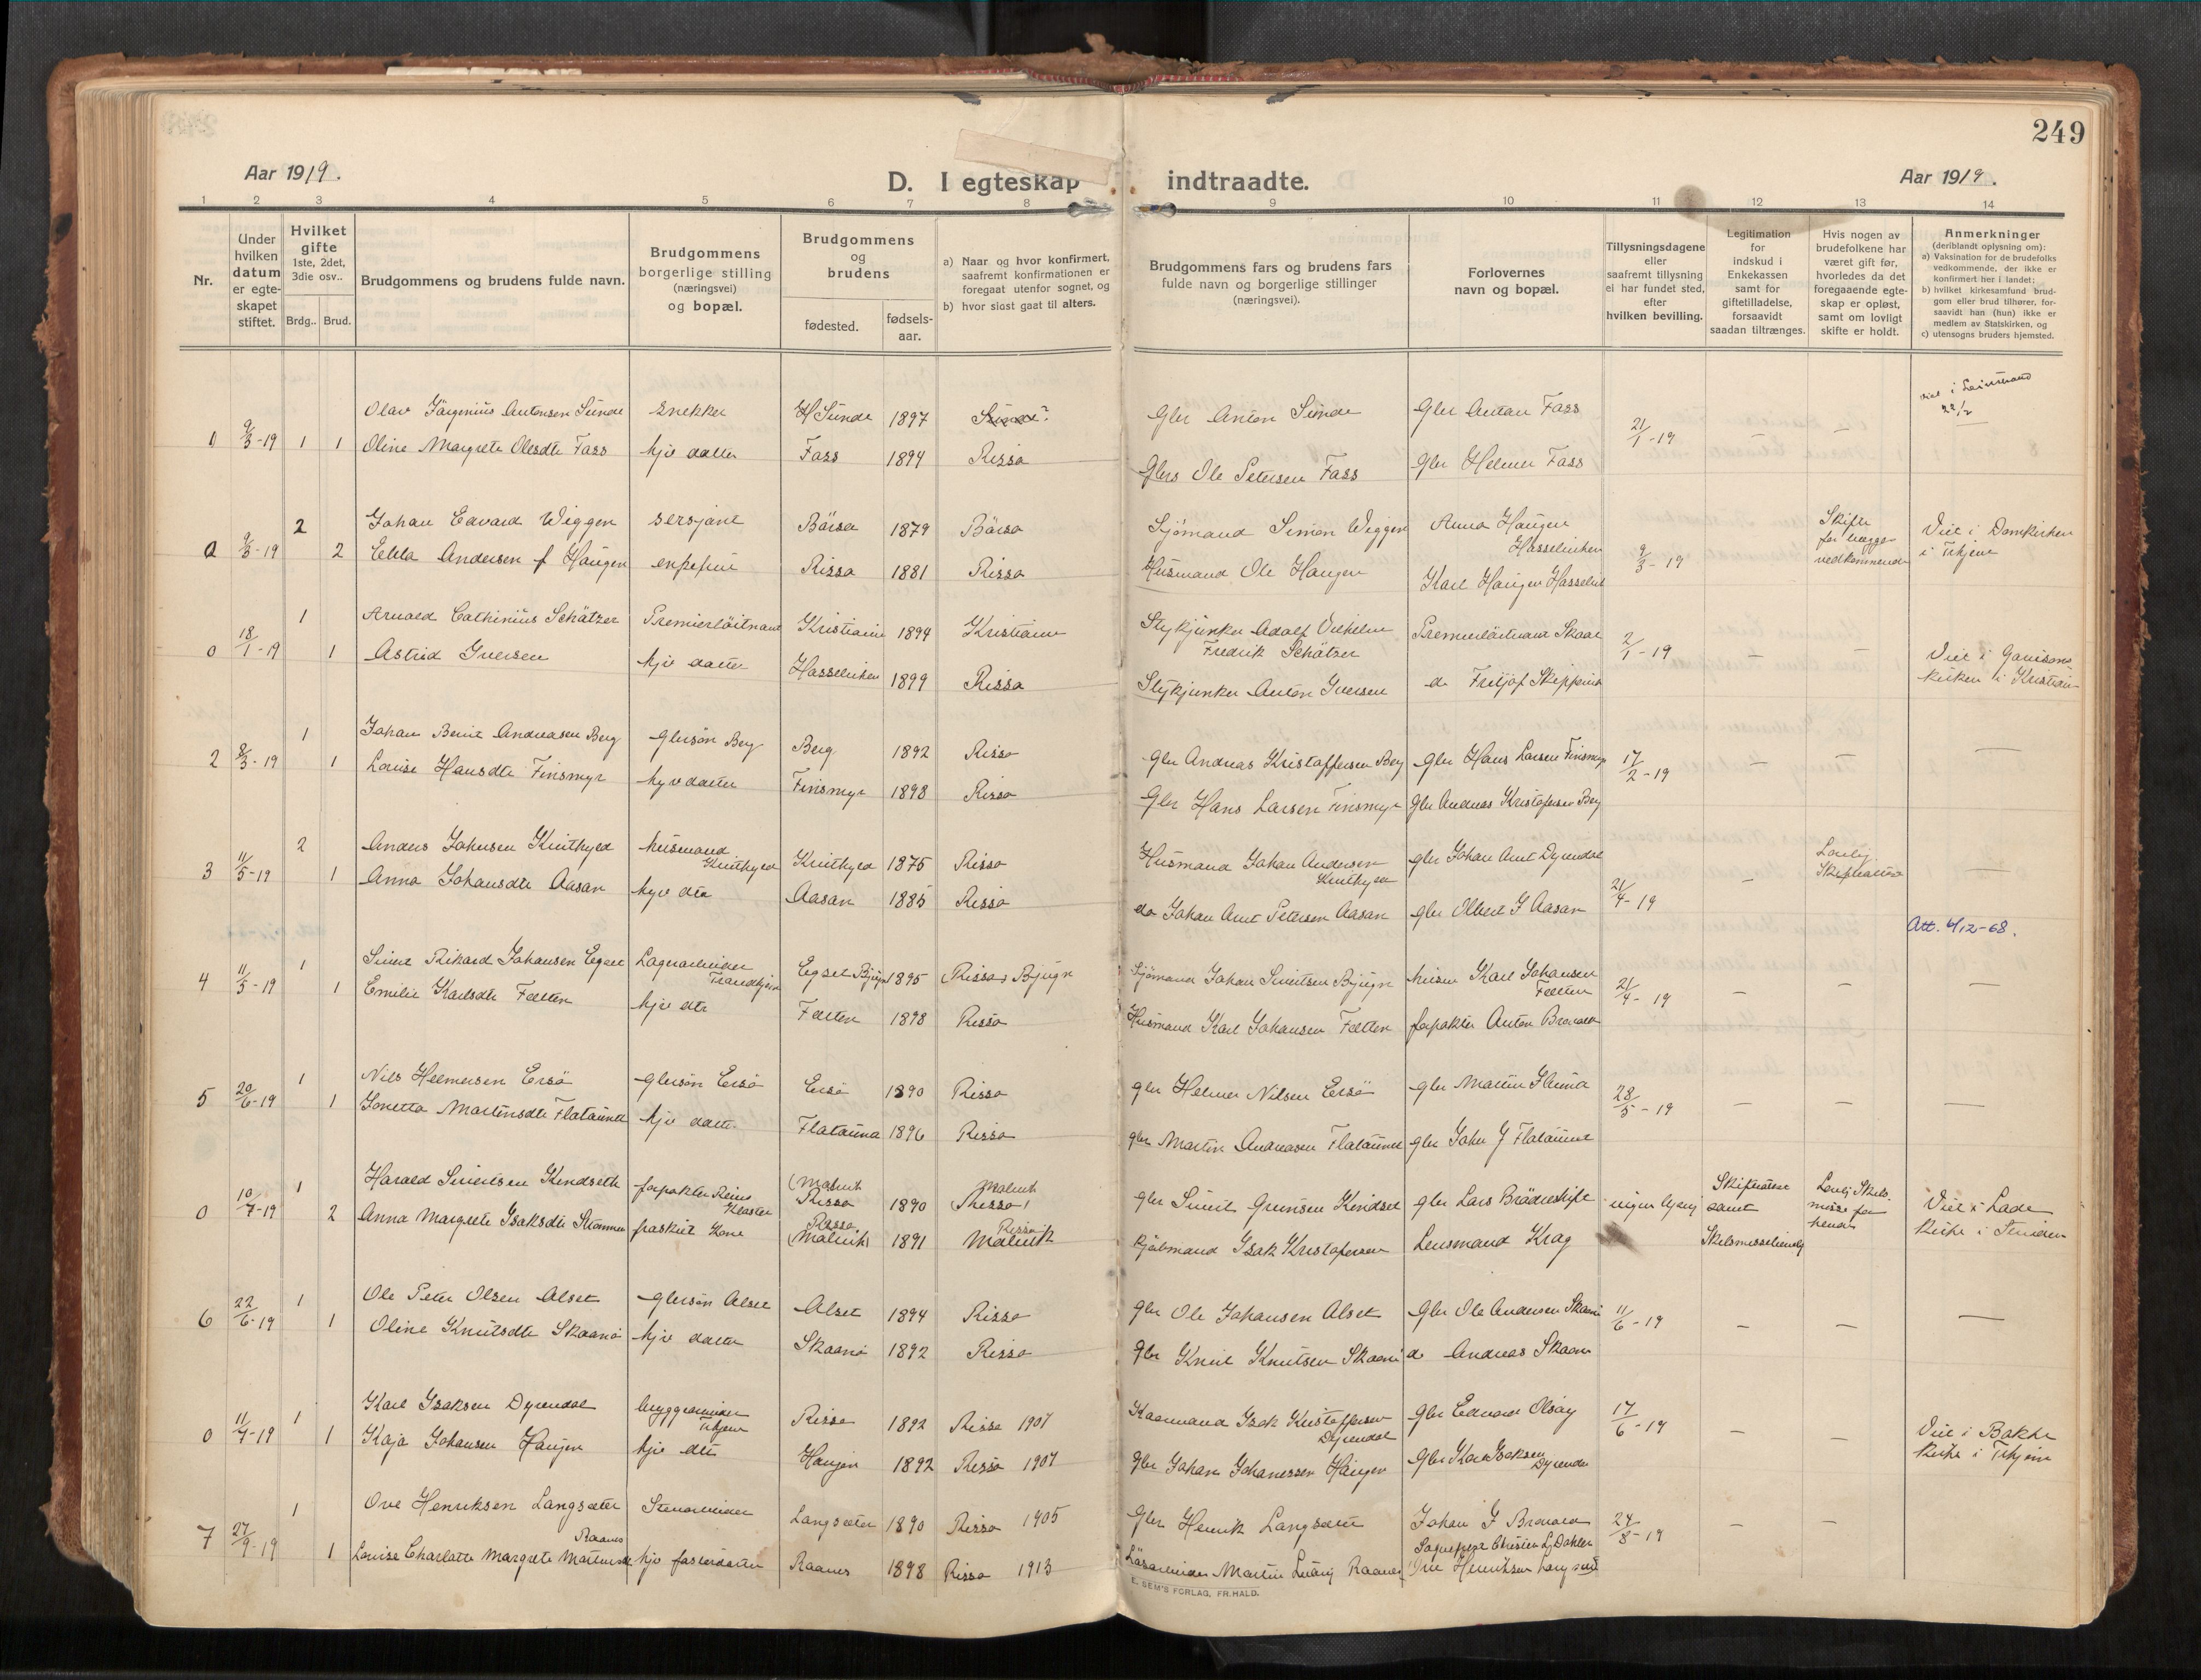 249
Aar 1919.
D. I egteskap indtraadte.
Aar 1919.
1 2 3 4 5 6 7 8 9 10 11 12 13 14
Nr.
Under hvilken datum er egteskapet stiftet.
Hvilket gifte 1ste, 2det, 3die osv..
Brdg.. Brud.
Brudgommens og brudens fulde navn.
Brudgommens borgerlige stilling (næringsvei) og bopæl.
Brudgommens og brudens
fødested.
fødsels-aar.
a) Naar og hvor konfirmert, saafremt konfirmationen er foregaat utenfor sognet, og
b) hvor sidst gaat til alters.
Brudgommens fars og brudens fars fulde navn og borgerlige stillinger (næringsvei).
Forlovernes navn og bopæl.
Tillysningsdagene eller saafremt tillysning ei har fundet sted, efter hvilken bevilling.
Legitimation for indskud i Enkekassen samt for giftetilladelse, forsaavidt saadan tiltrænges.
Hvis nogen av brudefolkene har været gift før, hvorledes da det foregaaende egteskap er opløst, samt om lovligt skifte er holdt.
Anmerkninger (deriblandt oplysning om):
a) Vaksination for de brudefolks vedkommende, der ikke er konfirmert her i landet;
b) hvilket kirkesamfund brudgom eller brud tilhører, forsaavidt han (hun) ikke er medlem av Statskirken, og
c) utensogns bruders hjemsted.
Olav Jørgenius Antonsen Sunde Snekker Sunde 1897 Gbr Anton Sunde Gbr Anton Fass
9/3-19 1 1 Oline Margrete Olesdtr Fass hjv datter Fass 1894 Rissa Gbrs Ole Petersen Fass Gbr Helmer Fass 21/1-19 — —
22/2
Johan Edvard Wiggen sersjant Børsa 1879 Børsa Sjømand Simon Wiggen Anna Haugen Hasselviken
0 9/3-19 2 2 Ella Andersen f Haugen enkefru Rissa 1881 Rissa Husmand Ole Haugen Karl Haugen Hasselvik 9/3-19
Skifte for begge vedkommende
Viet i Domkirken i Trhjem
Arnold Cathinius Schätzer Premierløitnant Kristiania 1894 Kristiania Stykjunker Adolf Vilhelm Fredrik Schätzer Premierløitnant Skaar
0 18/1-19 1 1 Astrid Iversen hjv datter Hasselviken 1899 Rissa Stykjunker Anton Iversen do Fritjof 2/1-19 — —
Viet i Garnisonskirken i Kristian
Johan Bernt Andreasen Berg gbrsøn Berg Berg 1892 Rissa Gbr Andreas Kristoffersen Berg Gbr Hans Larsen Finsmyr
2 8/3-19 1 1 Louise Hansdtr Finsmyr hjv datter Finsmyr 1898 Rissa Gbr Hans Larsen Finsmyr Gbr Andreas Kristofersen Berg 17/2-19 — — —
Anders Johnsen Kvithyld husmand Kvithyld Kvithyld 1875 Rissa Husmand Johan Andersen Kvithyld gbr Johan Arnt Dyrendal
3 11/5-19 2 1 Anna Johansdtr Aasan hjv dtr Aasan 1885 Rissa do Johan Arnt Petersen Aasan gbr Olbert J Aasan 21/4-19 — —
Lovlig Skifteattest
Att. 4/12-68.
Sivert Rikard Johansen Egset Lagerarbeider Trondhjem Egset Bjugn 1895 Rissa, Bjugn Sjømand Johan Sivertsen Bjugn husm Karl Johansen Fætten
4 11/5-19 1 1 Emilie Karlsdtr Fætten hjv dtr Fætten 1898 Rissa Husmand Karl Johansen Fætten forpakter Anton Bravold 21/4-19 — — —
Nils Helmersen Ersø gbrsøn Ersø Ersø 1890 Rissa gbr Helmer Nilsen Ersø gbr Martin
5 20/6-19 1 1 Jonetta Martinsdtr Flataunet hjv datter Flatauna 1896 Rissa gbr Martin Andreasen Flataunet gbr John J Flataunet 28/5-19 — — —
Harald Sivertsen Kindseth forpakter Reins Kloster (Malvik Rissa 1890 Malvik Rissa gbr Sivert Kindset gbr Lars Brødreskift
0 10/7-19 1 2 Anna Margrete Isaksdtr Strømmen fraskilt Kone Rissa (Malvik) 1891 Rissa Malvik Isak Kristofersen Lensmand Krag
Skifteattest samt Skilsmissebevilg
Lovlig Skilsmisse for henne
Viet i Lade kirke i Strinden
Ole Peter Olsen Alset gbrsøn Alset Alset 1894 Rissa gbr Ole Johansen Alset Gbr Ole Andersen Skaanø
6 22/6-19 1 1 Oline Knutsdtr Skaanø hjv datter Skaanø 1892 Rissa Gbr Knut Knutsen Skaanø do Andreas Skaanø 11/6-19 — — —
Karl Isaksen Dyrendal bryggearbeider Trhjem Rissa 1892 Rissa 1907 Kaarmand Isak Kristoffersen Dyrendal Gbr Edvard Olsøy
0 11/7-19 1 1 Kaja Johansen Haugen hjv dtr Haugen 1892 Rissa 1907 Gbr Johan Johanessen Haugen Gbr Karl Isaksen Dyrendal 17/6-19 — —
Viet i Bakke kirke i Trhjem
Ove Henriksen Langsæter Stenarbeider Langsæter 1890 Rissa 1905 Gbr Henrik Langsæter Johan J Bravold
7 27/9-19 1 1 Louise Charlotte Margrete Martinsdtr Raanes hjv fosterdatter Raanes 1898 Rissa 1913 Løsarbeider Martin Ludvig Raanes Ove Henriksen Langsæt 24/8-19 — —
E. SEM'S FORLAG, FR.HALD.